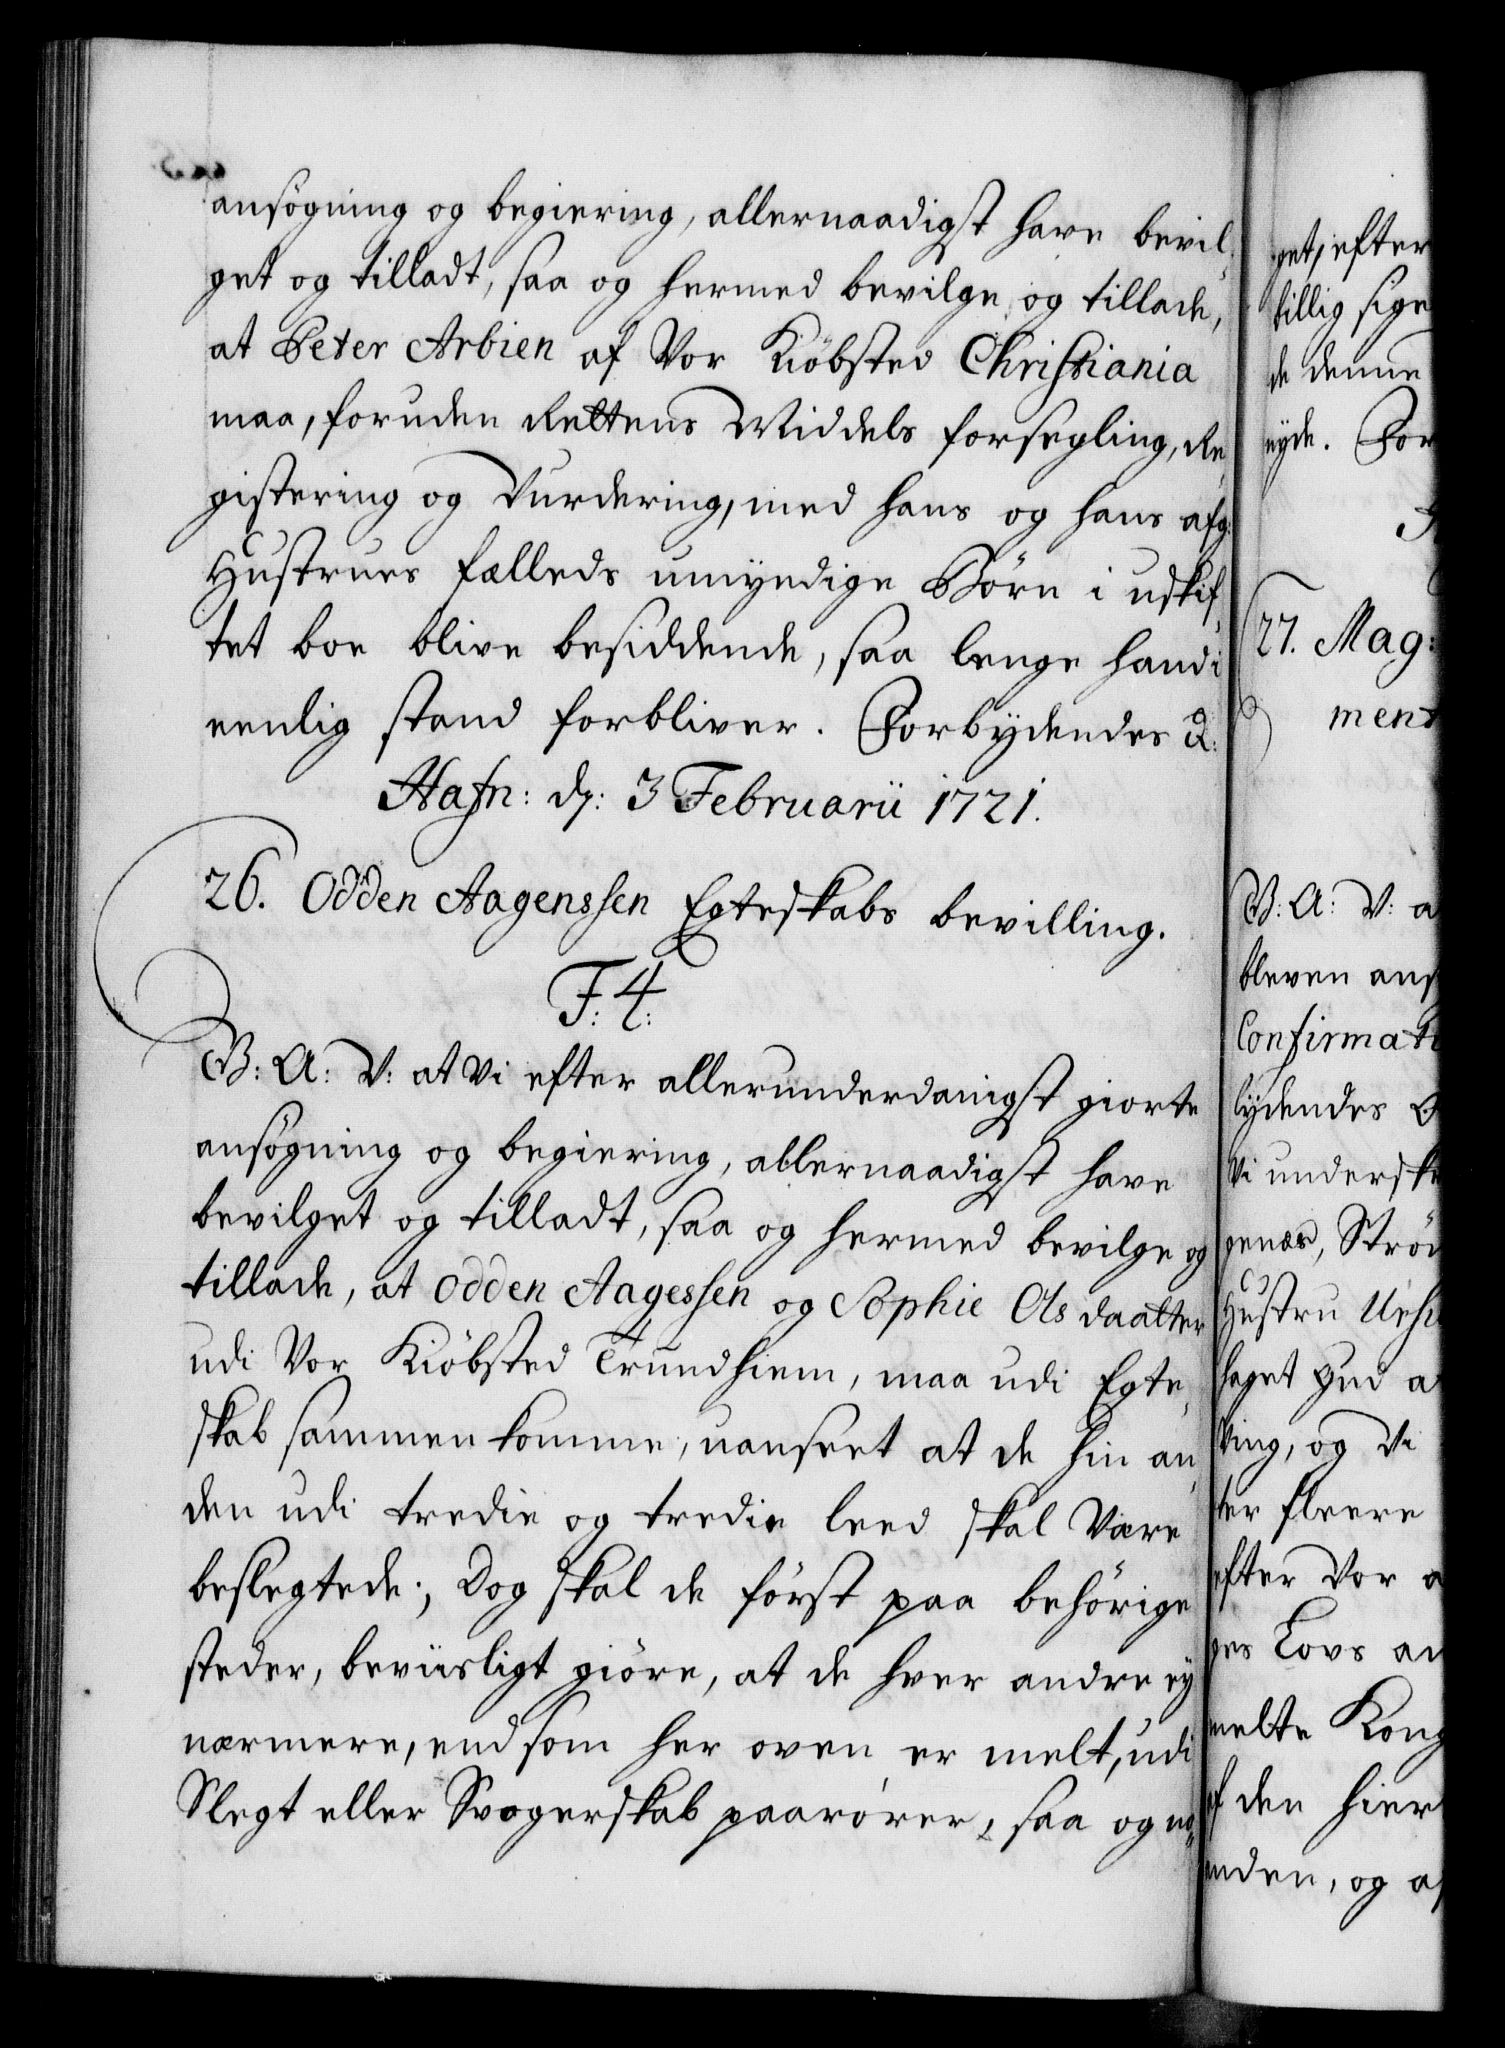 ansøgning og begiering, allernaadigst have bevil-
get og tilladt, saa og hermed bevilge og tillade,
at Peter Arbien af Vor Kiöbsted Christiania
maa, foruden Rettens Middels forsegling, Re-
gistering og Vurdering, med hans og hans afg:
Hustrues fælleds umyndige Börn i uskif-
tet boe blive besiddende, saa lenge hand i
eenlig stand forbliver. Forbydendes &:
Hafn: dn: 3 Februarii 1721.
26. Odden Aagenssen Egteskabs bevilling.
F: 4:
G: A: V: at Vi efter allerunderdanigst giorte
ansøgning og begiering, allernaadigst have
bevilget og tilladt, saa og hermed bevilge og
tillade, at Odden Aagessen og Sophie Ols daatter
udi Vor Kiöbsted Trundhiem, maa udi Egte-
skab sammen komme, uanseet at de hin an-
den udi tredie og tredie leed skal Være
beslegtede; Dog skal de först paa behörige
steder, beviisligt giöre, at de hver andre ey
nærmere, end som her oven er melt, udi
Slegt eller Svogerskab paarörer, saa og no-
get, efter
billig sige
de denne
nyde. For
27. Mag:
ment
G: A: V: a
bleven ans
Confirmati
lydendes
Vi underske
genær, Strö
Hustru
haget Gud a
Ving, og Vi
ter fleere
efter Vor a
ges Lovs an
melte Kong
af den hier
anden, og af